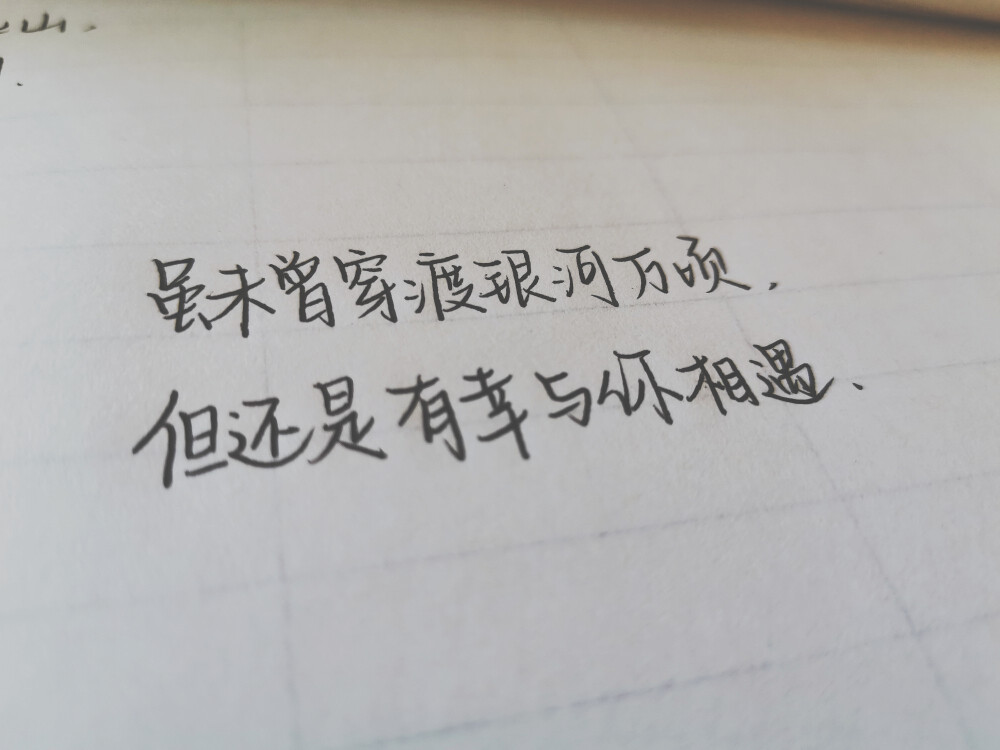 山.
虽未曾穿渡银河万顷.
但还是有幸与你相遇.